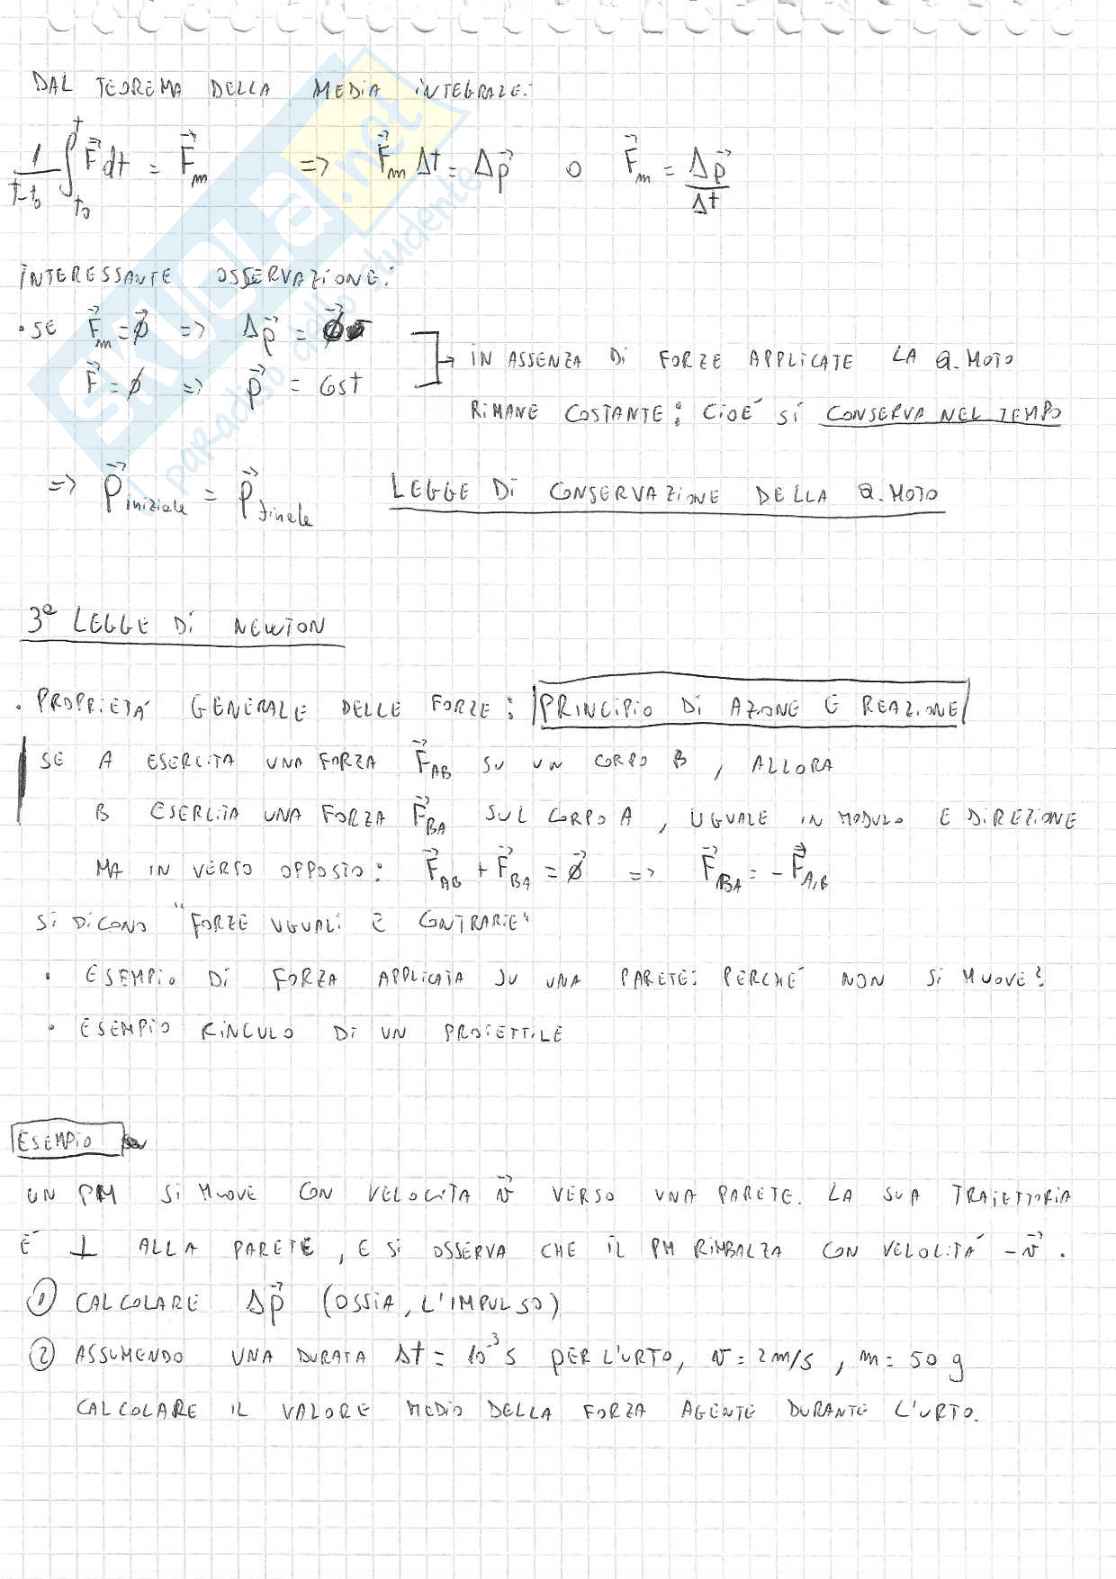 DAL TEOREMA DELLA MEDIA INTEGRALE:
1/(t-t₀) ∫_{t₀}^{t} F⃗ dt = F⃗m => F⃗m Δt = Δp⃗ o F⃗m = Δp⃗/Δt
INTERESSANTE OSSERVAZIONE:
• SE F⃗m = ∅⃗ => Δp⃗ = ∅⃗
F⃗ = ∅ => p⃗ = Cost
IN ASSENZA DI FORZE APPLICATE LA Q.MOTO
RIMANE COSTANTE; CIOÉ SI CONSERVA NEL TEMPO
=> p⃗iniziale = p⃗finale LEGGE DI CONSERVAZIONE DELLA Q.MOTO
3ª LEGGE DI NEWTON
• PROPRIETÁ GENERALE DELLE FORZE: PRINCIPIO DI AZIONE E REAZIONE
SE A ESERCITA UNA FORZA F⃗AB SU UN CORPO B, ALLORA
B ESERCITA UNA FORZA F⃗BA SUL CORPO A, UGUALE IN MODULO E DIREZIONE
MA IN VERSO OPPOSTO: F⃗AB + F⃗BA = ∅⃗ => F⃗BA = -F⃗AB
SI DICONO "FORZE UGUALI E CONTRARIE"
• ESEMPIO DI FORZA APPLICATA SU UNA PARETE: PERCHÉ NON SI MUOVE?
• ESEMPIO RINCULO DI UN PROIETTILE
ESEMPIO
UN PM SI MUOVE CON VELOCITA v⃗ VERSO UNA PARETE. LA SUA TRAIETTORIA
É ⊥ ALLA PARETE, E SI OSSERVA CHE IL PM RIMBALZA CON VELOCITÁ -v⃗.
① CALCOLARE Δp⃗ (OSSIA, L'IMPULSO)
② ASSUMENDO UNA DURATA Δt = 10⁻³ s PER L'URTO, v = 2 m/s, m = 50 g
CALCOLARE IL VALORE MEDIO DELLA FORZA AGENTE DURANTE L'URTO.
SKUOLA.net
il paradiso dello studente